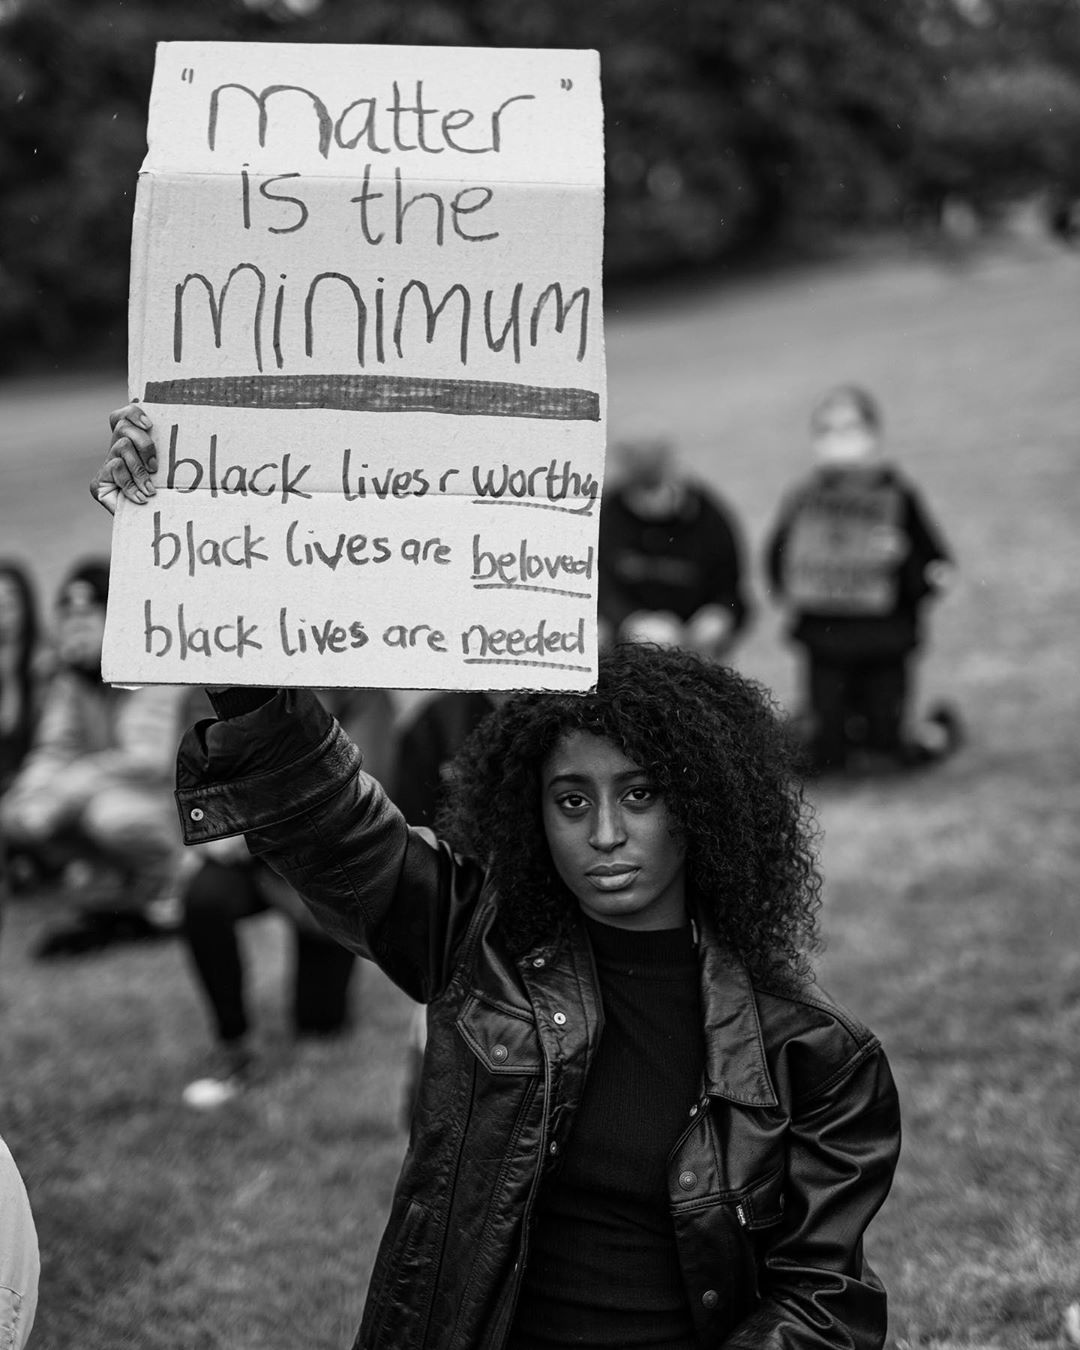 "Matter"
is the
Minimum
black lives r worthy
black lives are beloved
black lives are needed